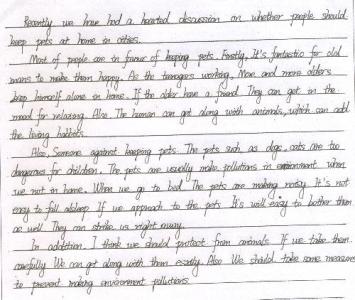 Recently we have had a hearted discussion on whether people should
keep pets at home in cities.
Most of people are in favor of keeping pets. Firstly, It's fantastic for old
mans to make them happy. As the teenagers working, More and more olders
keep himself alone in home. If the older have a friend. They can get in the
mood for relaxing. Also The human can get along with animals, which can add
the living habbits.
Also, Someone against keeping pets. The pets such as dogs, cats are too
dangerous for children. The pets are usually make pollutions in environment when
we not in home. When we go to bed. The pets are making noisy. It's not
easy to fall alsleep If we approach to the pets It's will easy to bother them
as well. They can strike us right away.
In addition. I think we should protect from animals If we take them
carefully We can get along with them exactly. Also We should take some measures
to prevent making environment pollutions